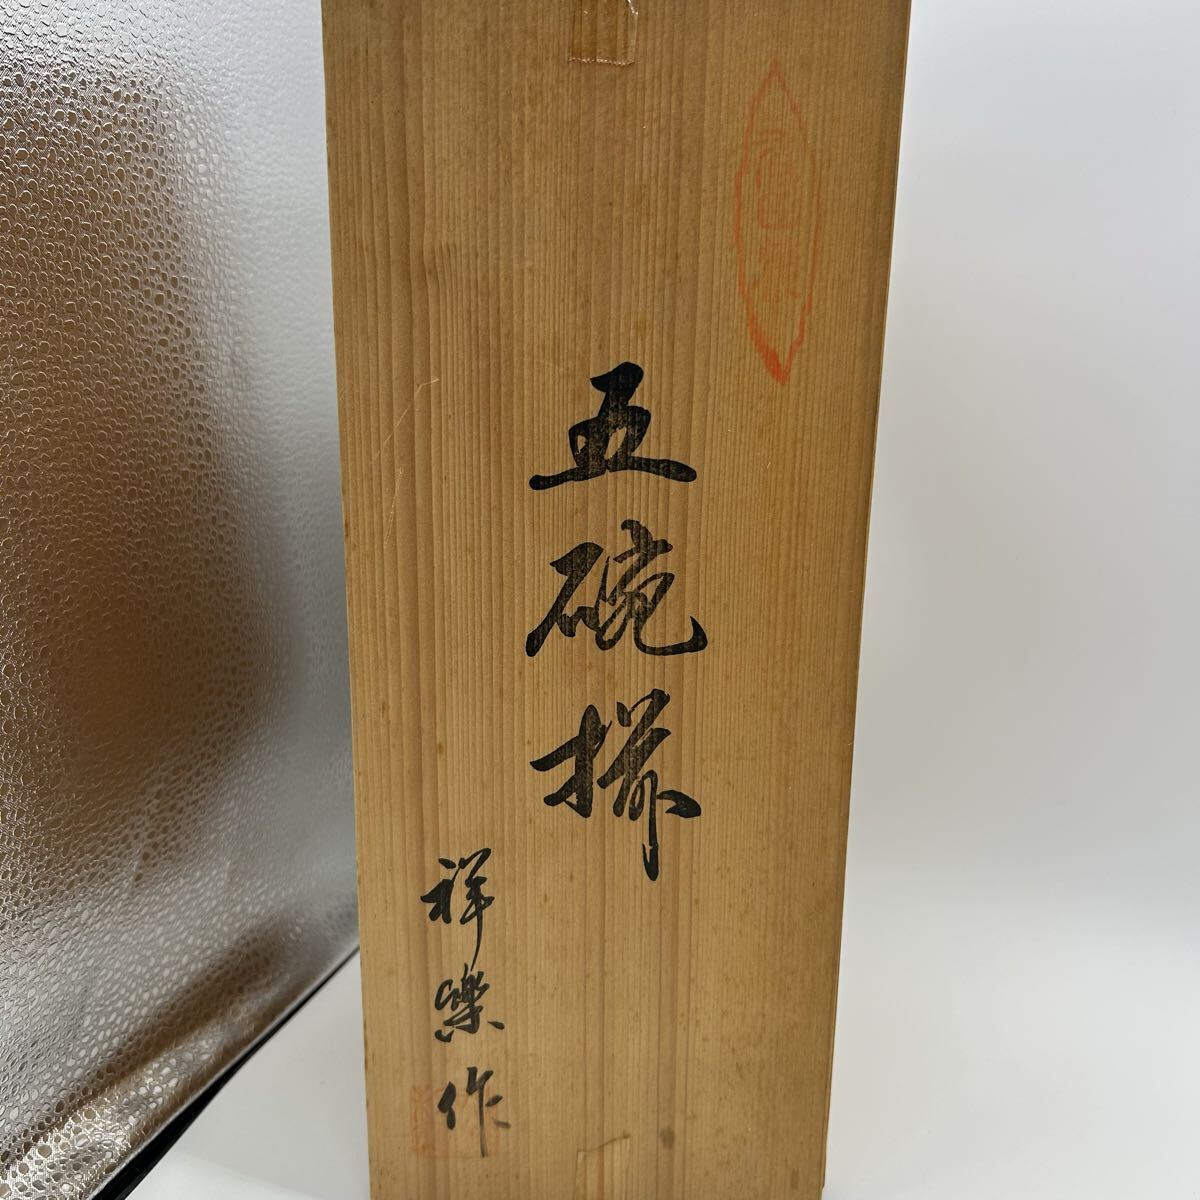 五碗揃
祥樂作